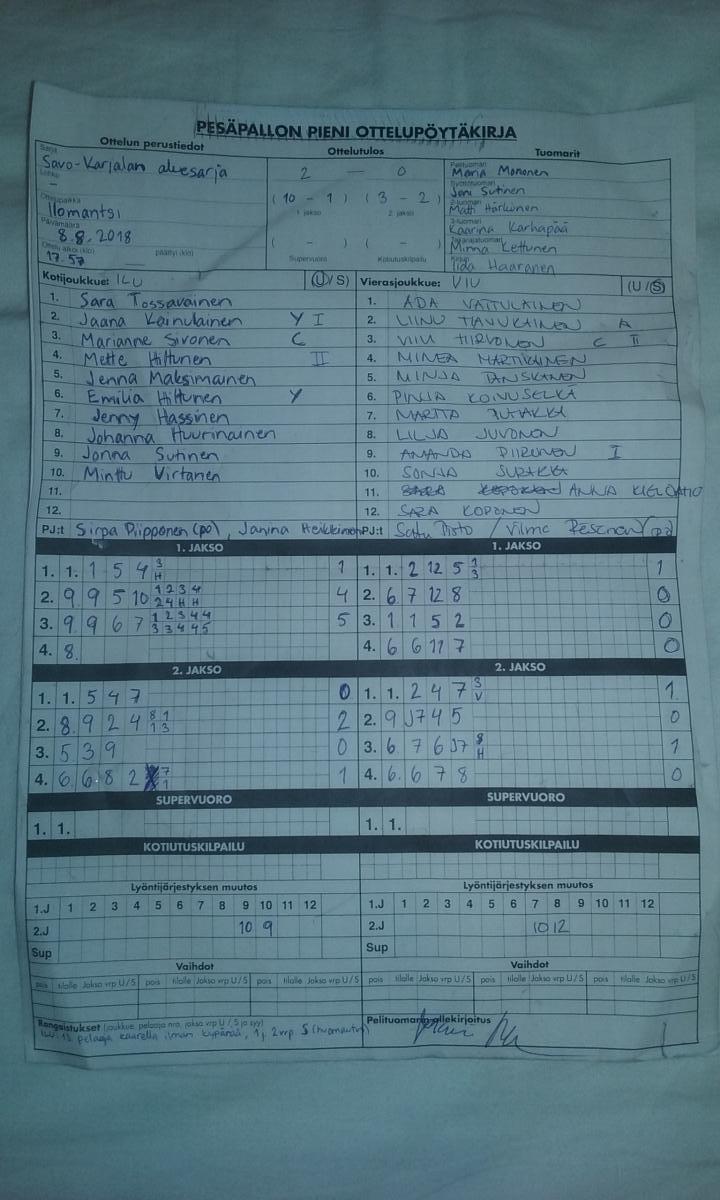 PESÄPALLON PIENI OTTELUPÖYTÄKIRJA
Ottelun perustiedot
Ottelutulos
Tuomarit
Sarja
Savo-Karjalan aluesarja
Lohko
-
Ottelupaikka
Ilomantsi
Päivämäärä
8.8.2018
Ottelu alkoi (klo) päättyi (klo)
17.57
2 — 0
( 10 - 1 ) ( 3 - 2 )
1. jakso 2. jakso
( - ) ( - )
Supervuoro Kotiutuskilpailu
Pelituomari
Maria Mononen
Syöttötuomari
Joni Sutinen
2-tuomari
Matti Härkönen
3-tuomari
Kaarina Karhapää
Takarajatuomari
Minna Kettunen
Kirjuri
Iida Haaranen
Kotijoukkue: ILU (U/S)
1. Sara Tossavainen
2. Jaana Kainulainen Y I
3. Marianne Sivonen C
4. Mette Hiltunen II
5. Jenna Maksimainen
6. Emilia Hiltunen Y
7. Jenny Hassinen
8. Johanna Huurinainen
9. Jonna Sutinen
10. Minttu Virtanen
11.
12.
PJ:t Sirpa Piipponen (po), Janina Heikkinen
Vierasjoukkue: VIU (U/S)
1. ADA VATTULAINEN
2. LIINU A
3. VIIVI HIRVONEN C II
4. MINEA MARTIKAINEN
5. MINJA TANSKANEN
6. PINJA KOINUSELKÄ
7. MARTTA
8. LILJA JUVONEN
9. AMANDA PIIRONEN I
10. SONJA SURAKKA
11. ANNA
12. SARA KOPONEN
PJ:t Satu / Vilma
1. JAKSO
1. 1. 1 5 4 3 H 1
2. 9 9 5 10 1 2 3 4 2 4 H H 4
3. 9 9 6 7 1 2 3 4 4 3 3 4 4 5 5
4. 8.
1. JAKSO
1. 1. 2 12 5 1 3 1
2. 6 7 12 8 0
3. 1 1 5 2 0
4. 6 6 11 7 0
2. JAKSO
1. 1. 5 4 7 0
2. 8. 9 2 4 8 1 1 3 2
3. 5 3 9 0
4. 6. 6. 8 2 7 1 1
2. JAKSO
1. 1. 2 4 7 3 V 1
2. 9 J7 4 5 0
3. 6 7 6 J7 8 H 1
4. 6. 6 7 8 0
SUPERVUORO
1. 1.
SUPERVUORO
1. 1.
KOTIUTUSKILPAILU
KOTIUTUSKILPAILU
Lyöntijärjestyksen muutos
1.J 1 2 3 4 5 6 7 8 9 10 11 12
2.J 10 9
Sup
Lyöntijärjestyksen muutos
1.J 1 2 3 4 5 6 7 8 9 10 11 12
2.J 10 12
Sup
Vaihdot
pois tilalle Jakso vrp U/S pois tilalle Jakso vrp U/S pois tilalle Jakso vrp U/S
Vaihdot
pois tilalle Jakso vrp U/S pois tilalle Jakso vrp U/S pois tilalle Jakso vrp U/S
Rangaistukset (joukkue, pelaaja nro, jakso vrp U / S ja syy)
pelaaja kaarella ilman kypärää, 1j 2vrp S (huomautus)
Pelituomarin allekirjoitus